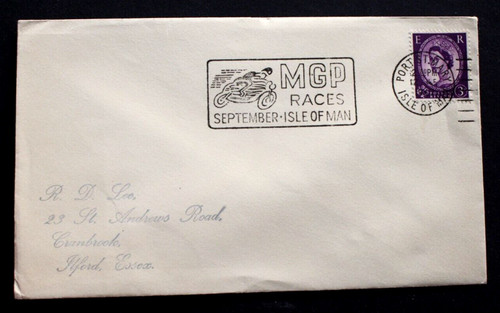 MGP
RACES
SEPTEMBER · ISLE OF MAN
E R
PORT
ISLE OF MAN
3
R. D. Lee,
23 St. Andrews Road,
Cranbrook,
Ilford, Essex.